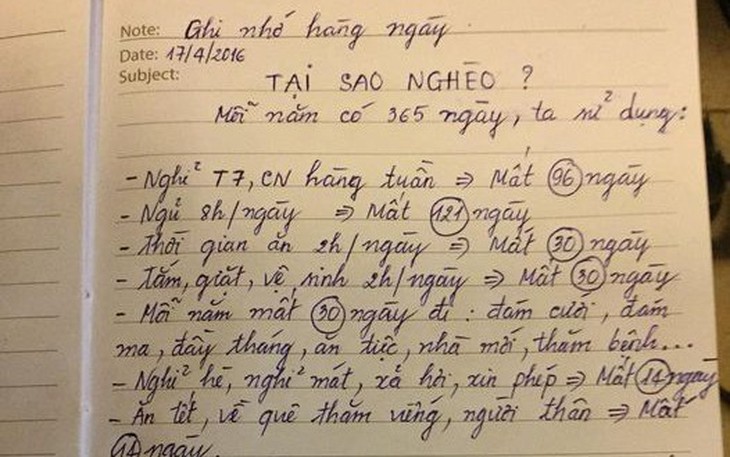 Note: Ghi nhớ hàng ngày
Date: 17/4/2016
Subject:
TẠI SAO NGHÈO ?
Mỗi năm có 365 ngày, ta sử dụng:
- Nghỉ T7, CN hàng tuần => Mất 96 ngày
- Ngủ 8h/ngày => Mất 121 ngày
- Thời gian ăn 2h/ngày => Mất 30 ngày
- Tắm, giặt, vệ sinh 2h/ngày => Mất 30 ngày
- Mỗi năm mất 30 ngày đi : đám cưới, đám
ma, đầy tháng, ăn tiệc, nhà mới, thăm bệnh...
- Nghỉ hè, nghỉ mát, xả hơi, xin phép => Mất 14 ngày
- Ăn tết, về quê thăm viếng, người thân => Mất
14 ngày.